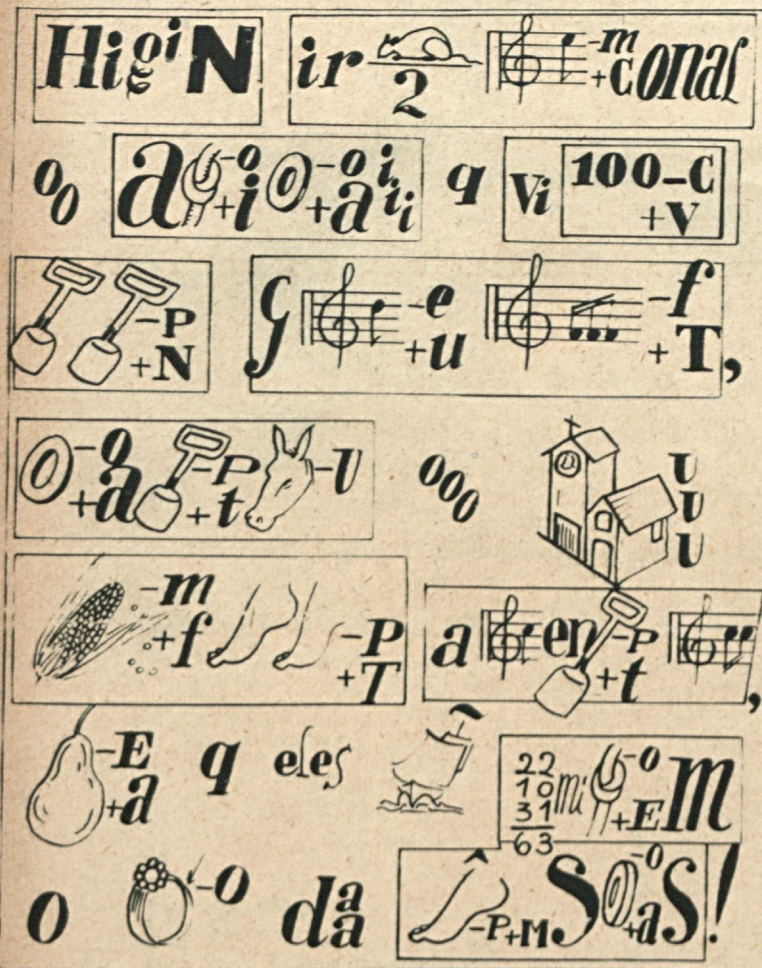 Higi N ir 2 -m +conal
oo a -o +i -o +a i i i q Vi 100-C +V
-P +N G -e +u -f +T,
-o +a -P +t -U ooo U U U
-m +f -P +T a en -P +t ,
-E +a q eles 22 10 31 63 mi -O +E m
O -O daa -P+M S -O +a S!